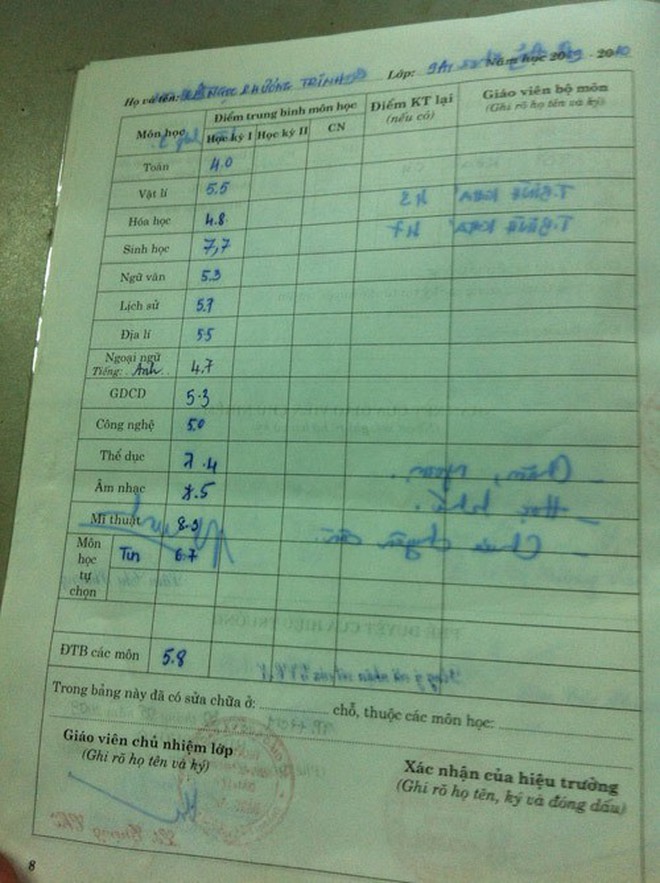 Họ và tên: NGỌC PHƯƠNG TRÌNH Lớp: 9A1 Năm học 2009 - 2010
Môn học Điểm trung bình môn học Điểm KT lại (nếu có) Giáo viên bộ môn (Ghi rõ họ tên và ký)
Học kỳ I Học kỳ II CN
Toán 4.0
Vật lí 5.5
Hóa học 4.8
Sinh học 7,7
Ngữ văn 5.3
Lịch sử 5.7
Địa lí 5.5
Ngoại ngữ
Tiếng: Anh 4.7
GDCD 5.3
Công nghệ 5.0
Thể dục 7.4
Âm nhạc 7.5
Mĩ thuật 8.3
Môn học tự chọn Tin 6.7
ĐTB các môn 5.8
Trong bảng này đã có sửa chữa ở: chỗ, thuộc các môn học:
Giáo viên chủ nhiệm lớp
(Ghi rõ họ tên và ký)
Xác nhận của hiệu trưởng
(Ghi rõ họ tên, ký và đóng dấu)
8